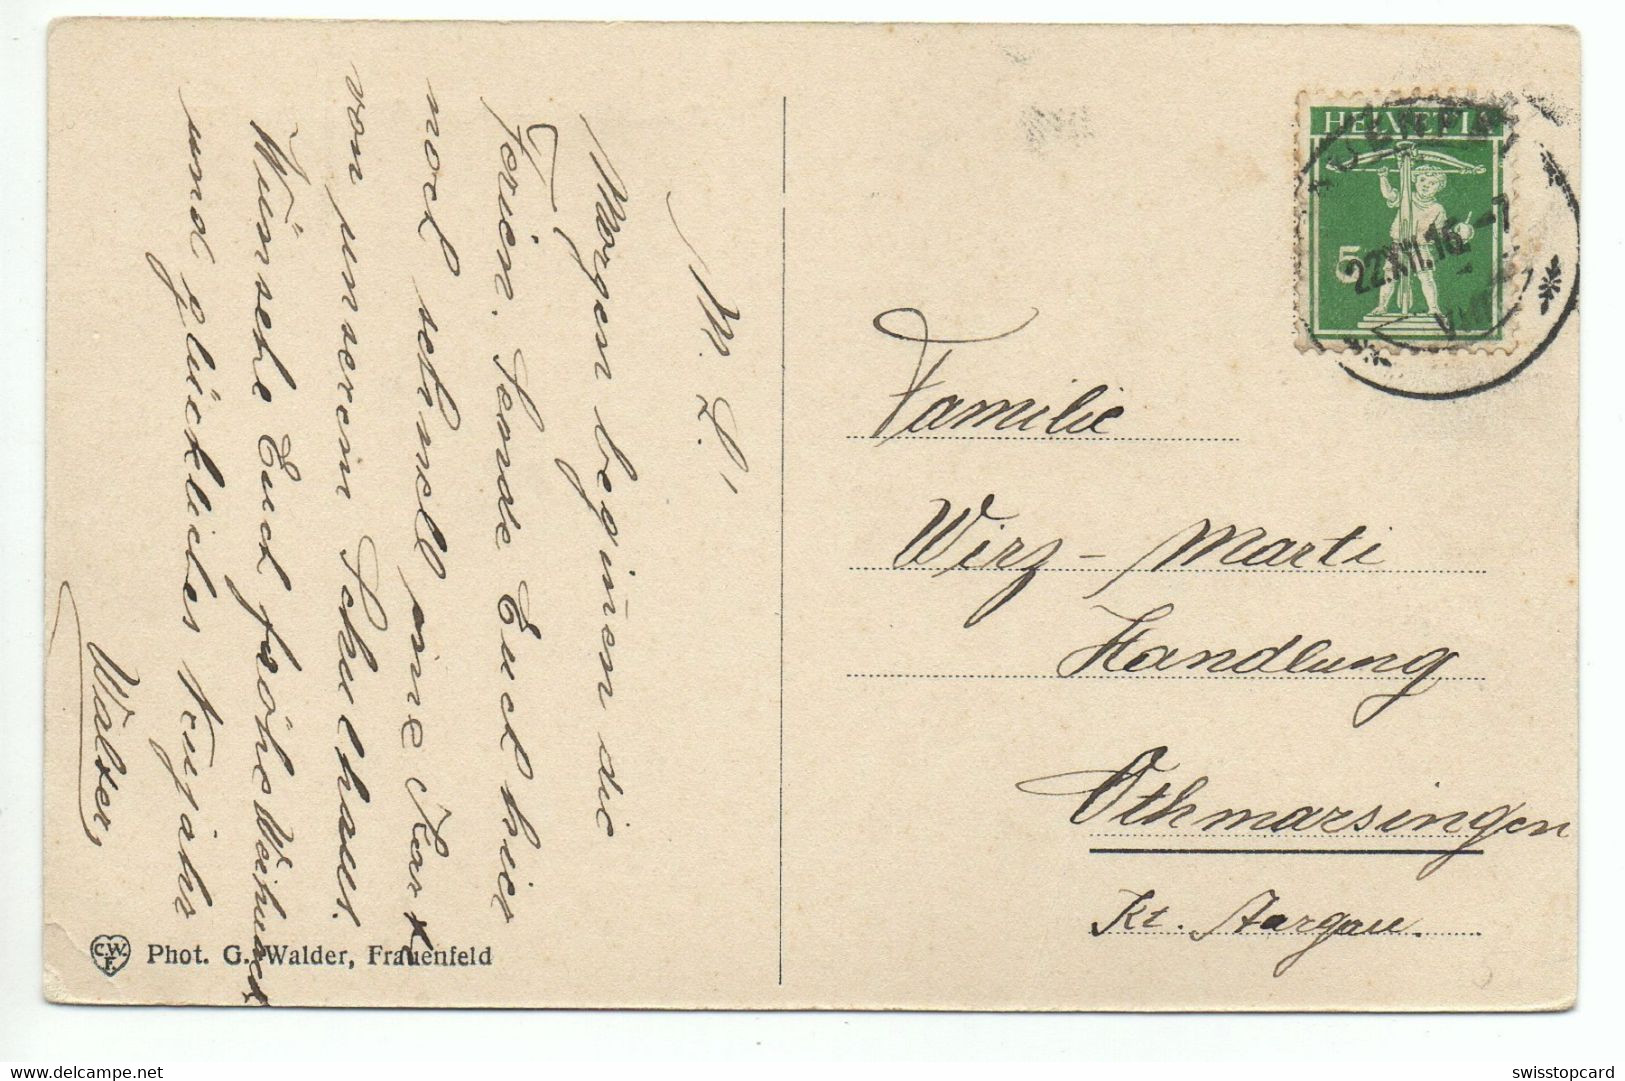 M. L!
Morgen begiñen die
Ferien. Sende Euch hier
noch schnell eine Kart
von unserem Schulhaus.
Wünsche Euch fröhe Weihnacht
und glückliches Neujahr
Walter,
C.W.
F.
Phot. G. Walder, Frauenfeld
HELVETIA
5
22.XII.16 -7
Familie
Wirz - Marti
Handlung
Othmarsingen
Kt. Aargau.
swisstopcard